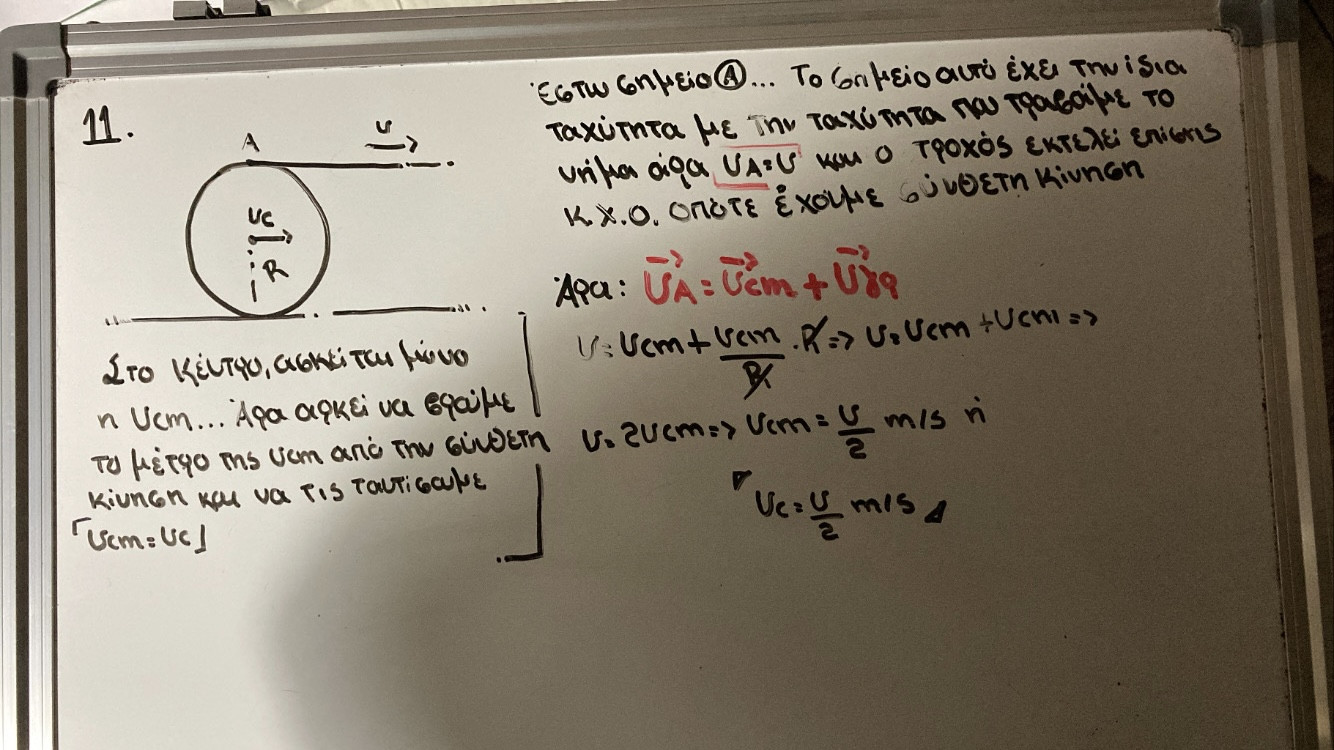 11.
A
υ
υc
R
Στο κέντρο, ασκείται μόνο
η υcm... Άρα αρκεί να βρούμε
το μέτρο της υcm από την σύνθετη
κίνηση και να τις ταυτίσουμε
「υcm = υc」
Έστω σημείο Α... Το σημείο αυτό έχει την ίδια
ταχύτητα με την ταχύτητα που τραβάμε το
νήμα άρα υA = υ και ο τροχός εκτελεί επίσης
Κ.Χ.Ο. οπότε έχουμε σύνθετη κίνηση
Άρα: υ⃗A = υ⃗cm + υ⃗γρ
υ = υcm + υcm/R · R => υ = υcm + υcm =>
υ = 2υcm => υcm = υ/2 m/s ή
「υc = υ/2 m/s」